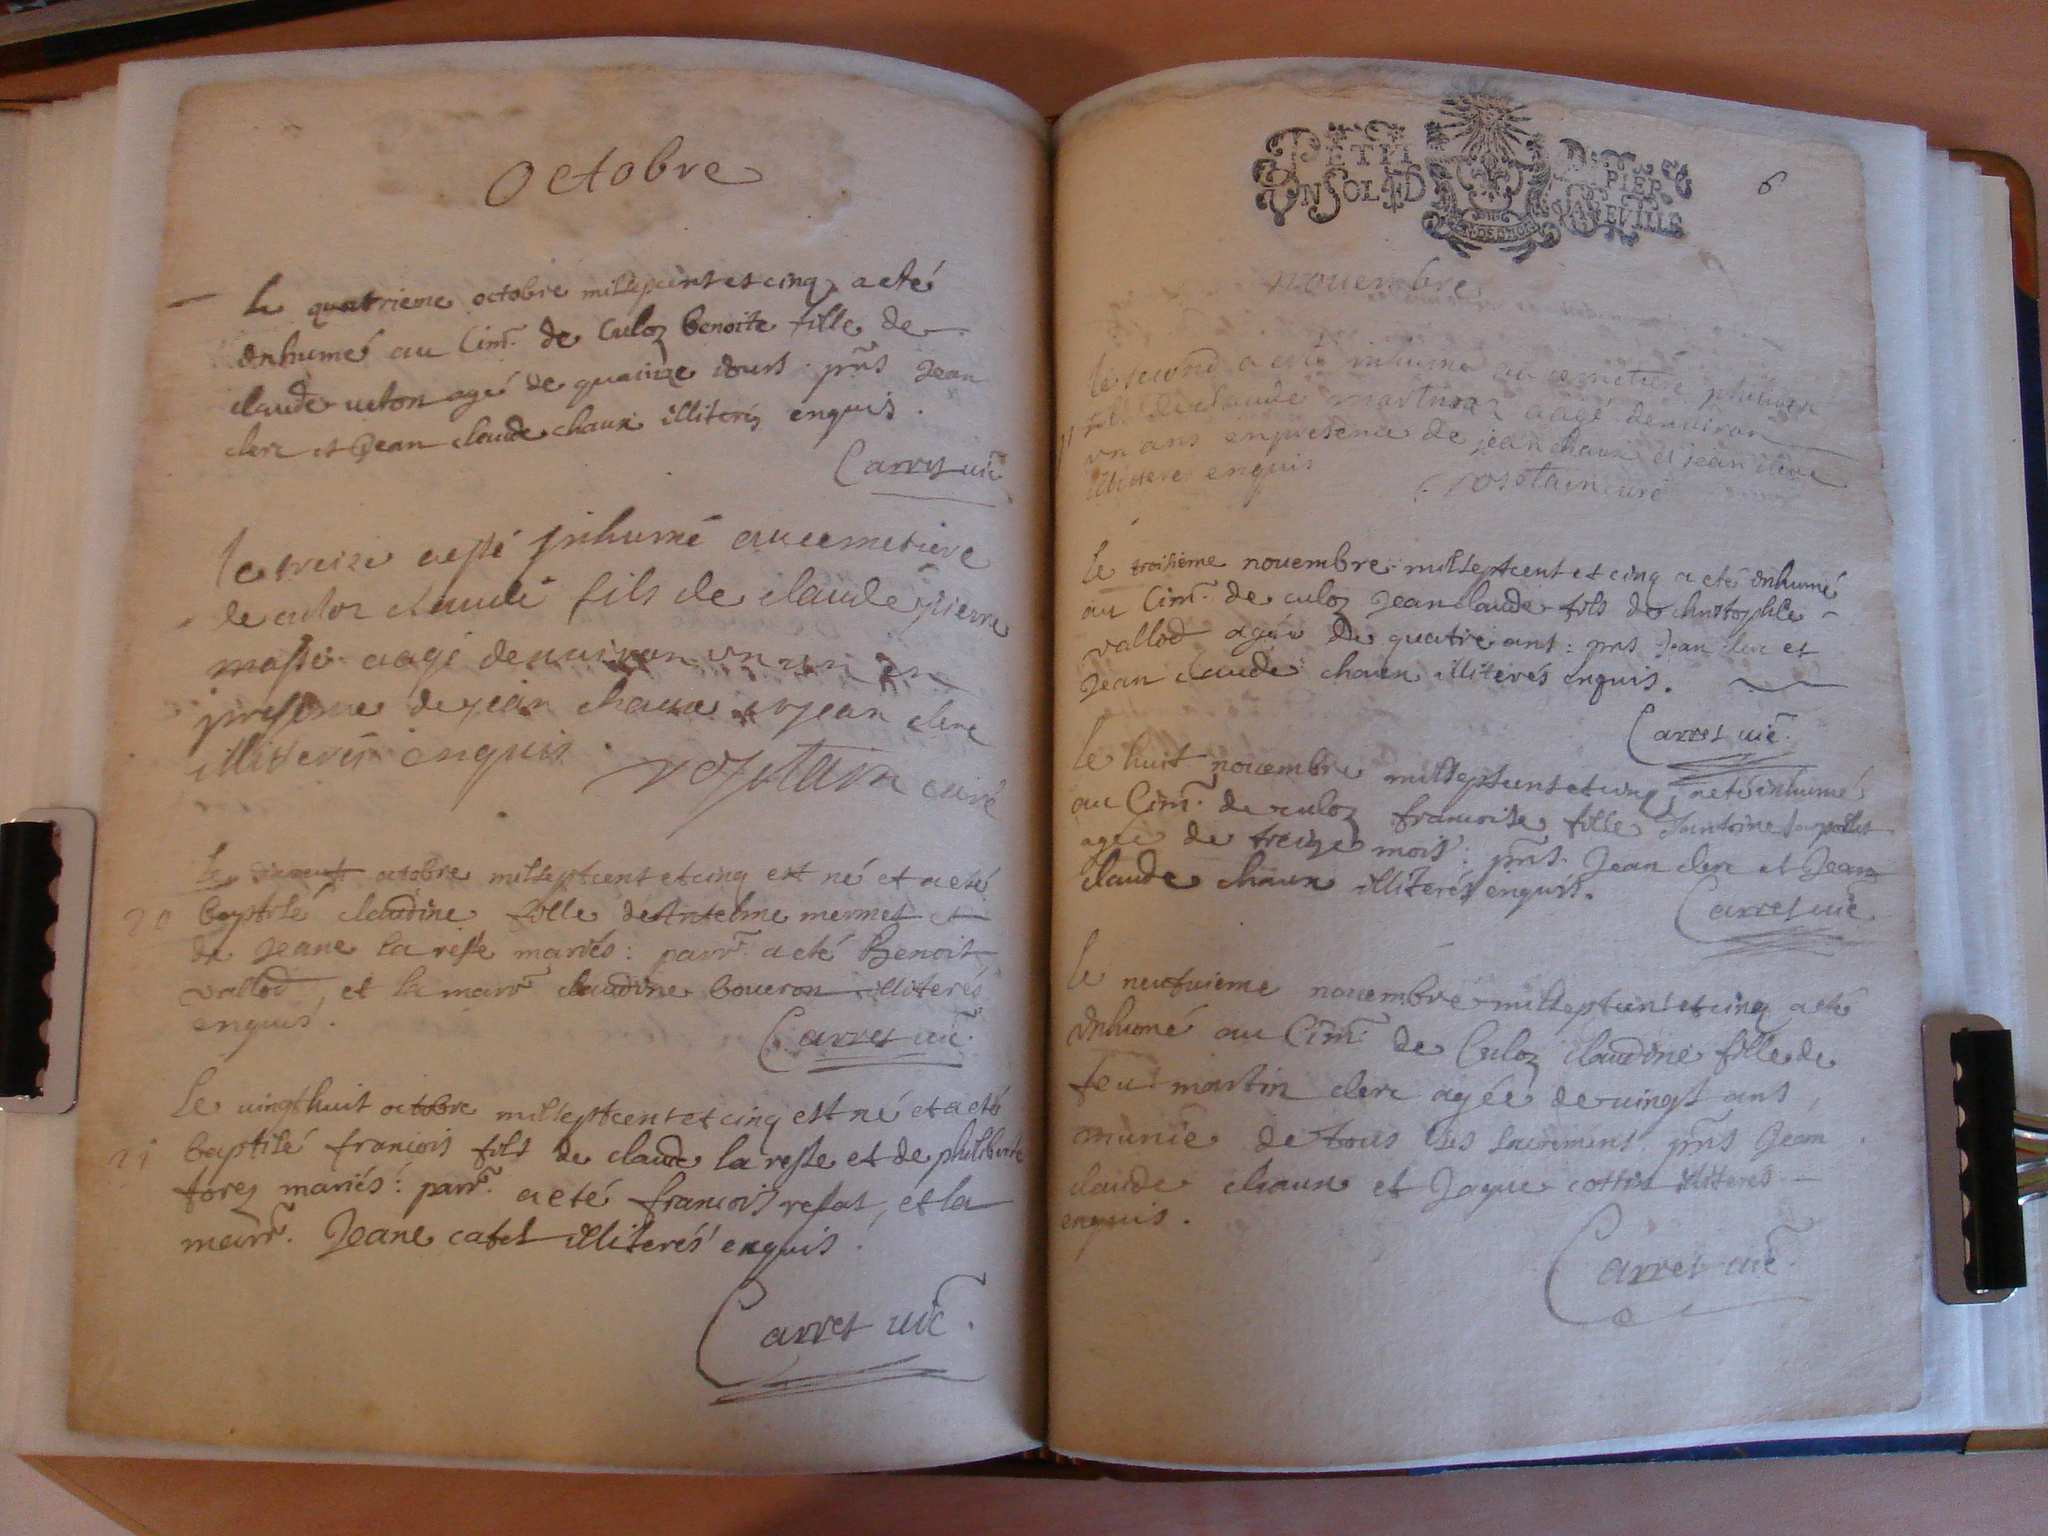 Octobre
Le quatrieme octobre mil sept cent et cinq a eté
inhumé au Cim. de Culoz benoite fille de
claude agé de quainze iours. pñs Jean
clerc et Jean claude chaux illiterés enquis.
Carret vic
le treize a esté jnhumé au cemetiere
de culoz claude fils de claude pierre
masse aagé denuiron un an en
presence de jean chaux et jean clerc
illiterés enquis. curé
Le octobre mil sept cent et cinq est né et a eté
20 baptisé claudine fille de Antelme mermet et
de Jeane la resse mariés: parr. a eté Benoit
vallod, et la marr. claudine boueron illiterés
enquis.
Carret vic.
Le uingt huit octobre mil sept cent et cinq est né et a eté
21 baptisé francois fils de claude la resse et de philiberte
forez mariés: parr. a eté francois , et la
marr. Jeane illiterés enquis.
Carret vic.
PETIT PAPIER
UN SOL 6D LA FEVILLE
6
nouembre
le second a esté inhumé au cemetiere
de claude aagé denuiron
un ans en presence de jean chaux et jean clerc
illiteres enquis curé
Le troisieme nouembre mil sept cent et cinq a eté inhumé
au Cim. de culoz Jean claude fils de christophle
vallod agéé de quatre ans: pñs Jean clerc et
Jean claude chaux illiterés enquis.
Carret vic.
Le huit nouembre mil sept cent et cinq a eté inhumé
au Cim. de culoz francoise fille d'antoine
agée de treize mois: pñs. Jean clerc et Jean
claude chaux illiterés enquis.
Carret vic
le neufuieme nouembre mil sept cent et cinq a eté
inhumé au Cim. de Culoz claudine fille de
feu martin clerc agéé de uingt ans,
munie de tous les sacremens. pñs Jean
claude chaux et Jaque cottin illiteres
enquis.
Carret vic.